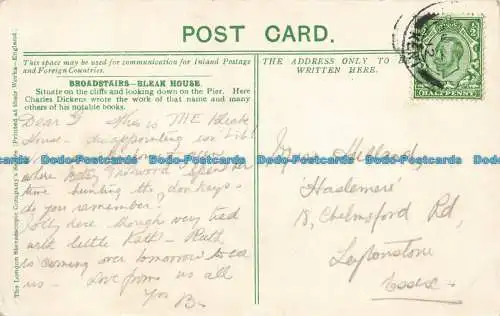 POST CARD.
This space may be used for communication for Inland Postage and Foreign Countries.
THE ADDRESS ONLY TO
WRITTEN HERE.
BROADSTAIRS—BLEAK HOUSE.
Situate on the cliffs and looking down on the Pier. Here
Charles Dickens wrote the work of that name and many
others of his notable books.
The London Stereoscopic Company's Series (Printed at their Works—England).
HALFPENNY
Dear This is THE Bleak
House. disappointing isn't it!
where Betsy Trotwood spent her
time hunting the donkeys.
do you remember?
Jolly here though very tired
with little Kath - Ruth
is coming over tomorrow to see
us - Love from us all
Yrs B-
Miss
"Haslemere"
18, Chelmsford Rd,
Leytonstone
Essex
Dodo-Postcards Dodo-Postcards Dodo-Postcards Dodo-Postcards Dodo-Postcards